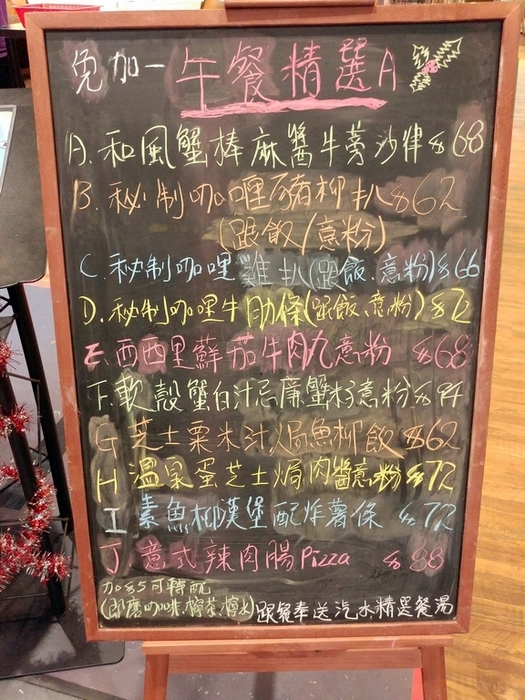 免加一 午餐精選A
A. 和風蟹棒麻醬牛蒡沙律 $68
B. 秘制咖喱豬柳扒 $62
(跟飯/意粉)
C. 秘制咖哩雞扒(跟飯.意粉) $66
D. 秘制咖哩牛肋條(跟飯.意粉) $72
E. 西西里蘇茄牛肉丸意粉 $68
F. 軟殼蟹白汁忌廉蟹籽意粉 $94
G 芝士粟米汁焗魚柳飯 $62
H 溫泉蛋芝士焗肉醬意粉 $72
I 素魚柳漢堡配炸薯條 $72
J 意式辣肉腸Pizza $88
加$5可轉配
(即磨咖啡.檸茶.檸水) 跟餐奉送汽水精選餐湯